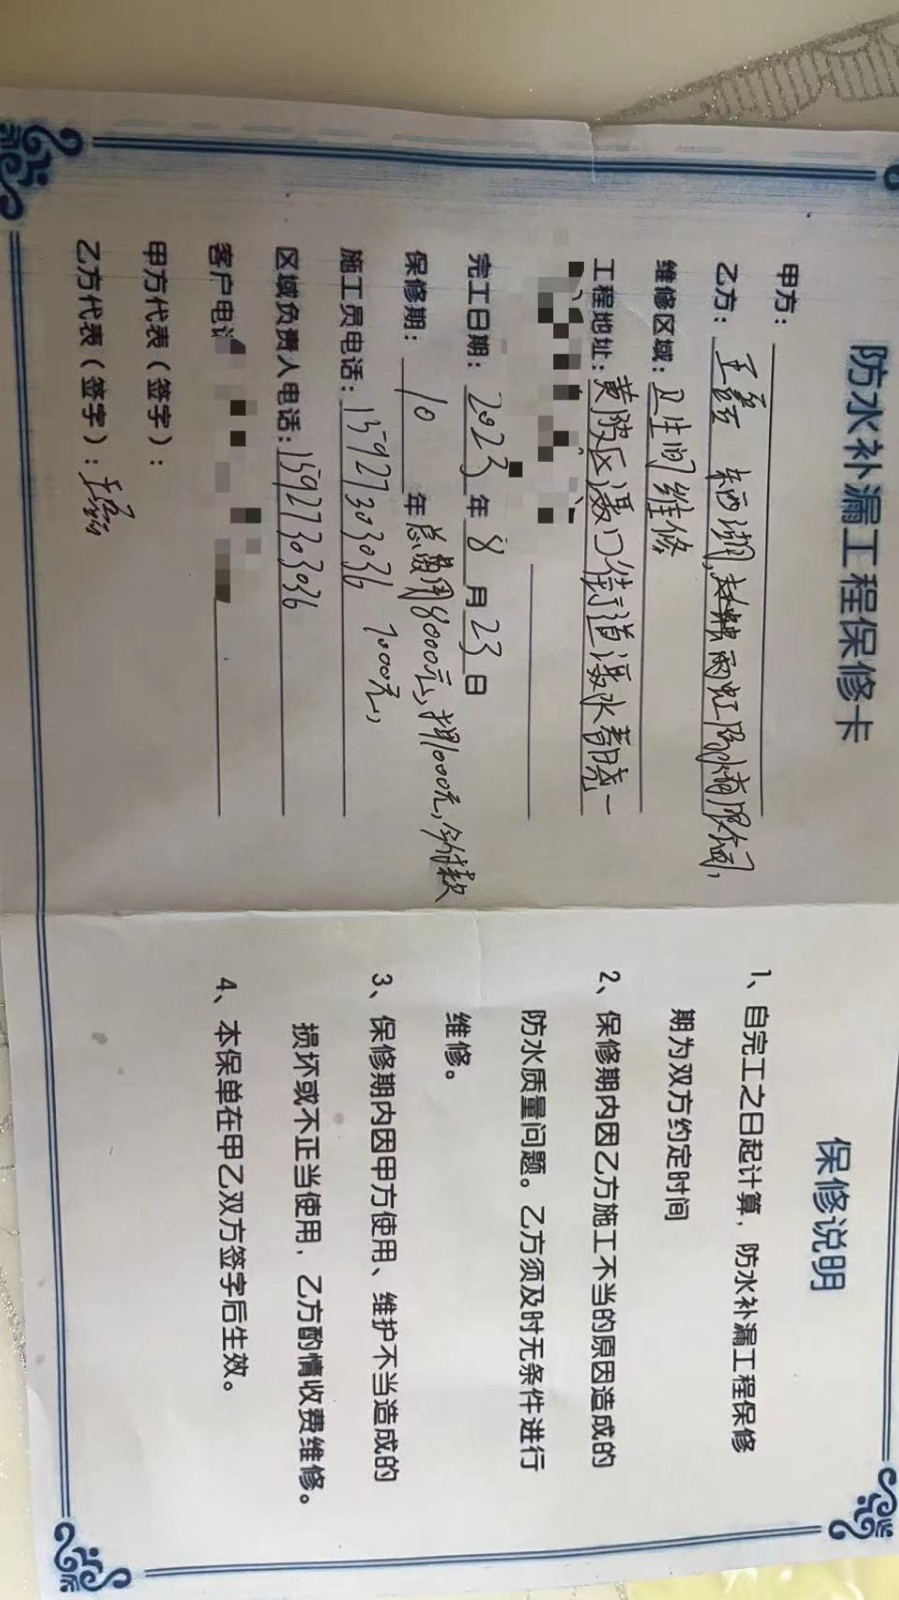 防水补漏工程保修卡
甲方：
乙方：王磊 东西湖，雨虹防水有限公司，
维修区域：卫生间维修
工程地址：黄陂区滠口街道滠水春晓一
完工日期：2023年8月23日
保修期：10年总费用8000元，押1000元，今付款
7000元，
施工员电话：15927303036
区域负责人电话：15927303036
客户电话
甲方代表（签字）：
乙方代表（签字）：王磊
保修说明
1、自完工之日起计算，防水补漏工程保修
期为双方约定时间
2、保修期内因乙方施工不当的原因造成的
防水质量问题。乙方须及时无条件进行
维修。
3、保修期内因甲方使用、维护不当造成的
损坏或不正当使用，乙方酌情收费维修。
4、本保单在甲乙双方签字后生效。